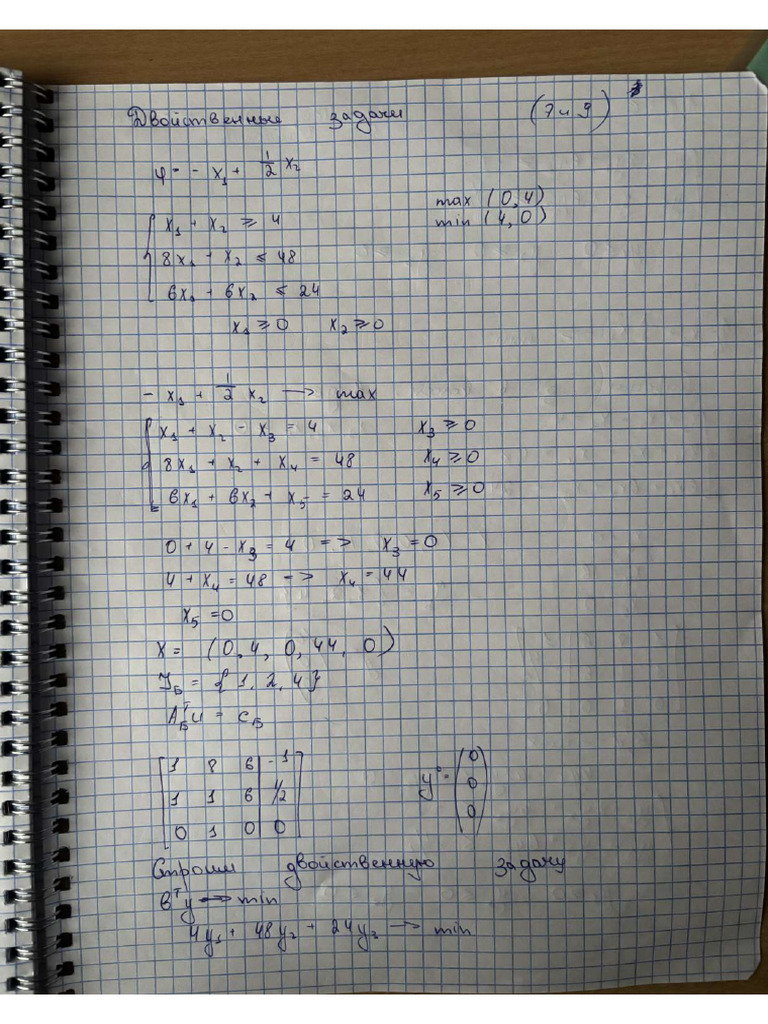 Двойственные задачи (7 и 9)
φ = - x₁ + 1/2 x₂
max (0,4)
min (4,0)
x₁ + x₂ ≥ 4
8x₁ + x₂ ≤ 48
6x₁ + 6x₂ ≤ 24
x₁ ≥ 0 x₂ ≥ 0
- x₁ + 1/2 x₂ → max
x₁ + x₂ - x₃ = 4 x₃ ≥ 0
8x₁ + x₂ + x₄ = 48 x₄ ≥ 0
6x₁ + 6x₂ + x₅ = 24 x₅ ≥ 0
0 + 4 - x₃ = 4 => x₃ = 0
4 + x₄ = 48 => x₄ = 44
x₅ = 0
X = (0, 4, 0, 44, 0)
J_Б = {1, 2, 4}
A_Б^T u = c_Б
1 8 6 | -1
1 1 6 | 1/2
0 1 0 | 0
y⁰ = (0 0 0)
Строим двойственную задачу
b^T y → min
4y₁ + 48y₂ + 24y₃ → min